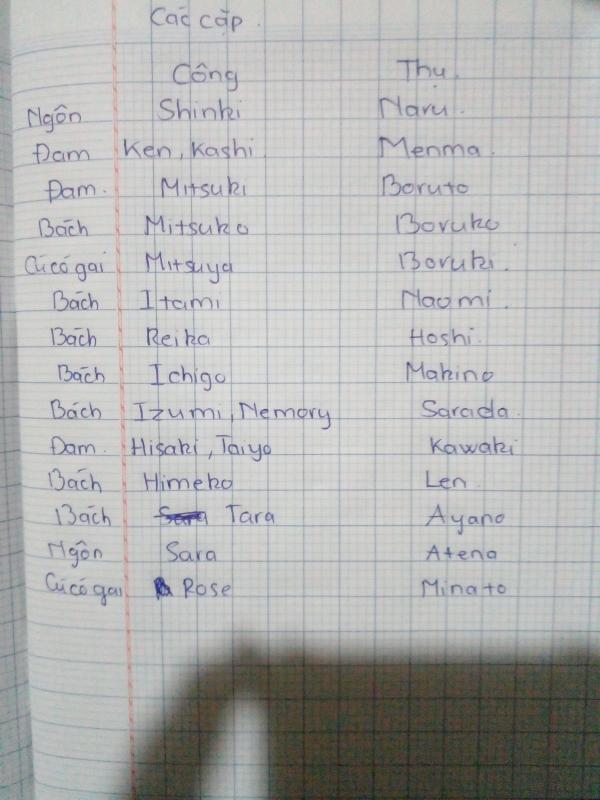 Các cặp.
Công Thụ.
Ngôn Shinki Naru.
Đam Ken, Kashi Menma.
Đam. Mitsuki Boruto
Bách Mitsuko Boruko
Cúcógai Mitsuya Boruki.
Bách Itami Naomi.
Bách Reika Hoshi.
Bách Ichigo Makino
Bách Izumi, Nemory Sarada.
Đam. Hisaki, Taiyo Kawaki
Bách Himeko Len
Bách Tara Ayano
Ngôn Sara Ateno
Cúcógai Rose Minato